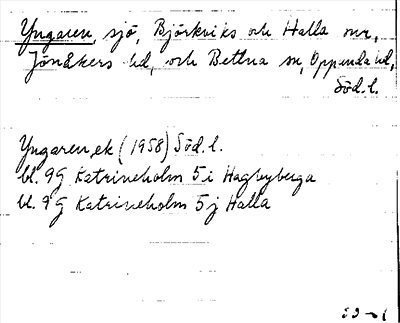 Yngaren, sjö, Björkviks och Halla snr,
Jönåkers hd, och Bettna sn, Oppunda hd,
Söd. l.
Yngaren, ek (1958) Söd. l.
bl. 9G Katrineholm 5 i Hagbyberga
bl. 9G Katrineholm 5 j Halla